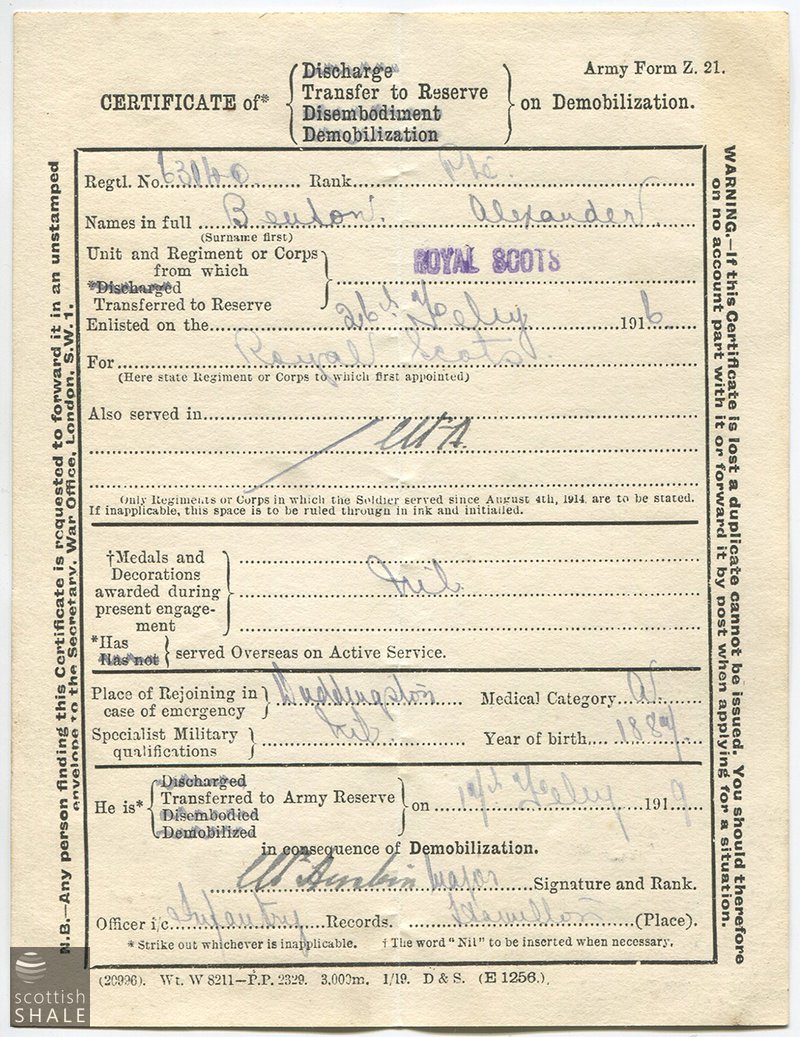 Army Form Z. 21.
CERTIFICATE of* { Discharge
Transfer to Reserve
Disembodiment
Demobilization } on Demobilization.
Regtl. No. 63040 Rank Pte.
Names in full Benton. Alexander.
(Surname first)
Unit and Regiment or Corps
from which
*Discharged
Transferred to Reserve } ROYAL SCOTS
Enlisted on the 26th Feby 1916
For Royal Scots.
(Here state Regiment or Corps to which first appointed)
Also served in
Only Regiments or Corps in which the Soldier served since August 4th, 1914, are to be stated.
If inapplicable, this space is to be ruled through in ink and initialled.
†Medals and
Decorations
awarded during
present engage-
ment } Nil.
*Has
Has not } served Overseas on Active Service.
Place of Rejoining in
case of emergency } Duddingston Medical Category A.
Specialist Military
qualifications } Nil. Year of birth 1887.
He is* { Discharged
Transferred to Army Reserve
Disembodied
Demobilized } on 17th Feby 1919
in consequence of Demobilization.
Major Signature and Rank.
Officer i/c Infantry Records. Hamilton (Place).
*Strike out whichever is inapplicable. † The word "Nil" to be inserted when necessary.
(20996). Wt. W 8211—P.P. 2329. 3,000m. 1/19. D & S. (E 1256.)
N.B.—Any person finding this Certificate is requested to forward it in an unstamped
envelope to the Secretary, War Office, London, S.W. 1.
WARNING.—If this Certificate is lost a duplicate cannot be issued. You should therefore
on no account part with it or forward it by post when applying for a situation.
scottish
SHALE